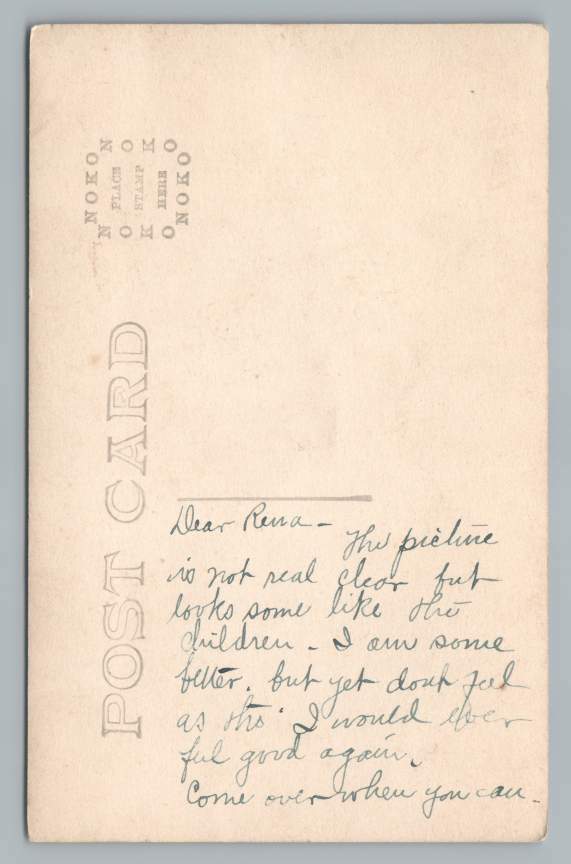 NOKO
N
PLACE
O
STAMP
K
HERE
O
NOKO
N
O
K
O
POST CARD
Dear Rena -
The picture
is not real clear but
looks some like the
children - I am some
better. but yet dont feel
as tho' I would ever
feel good again.
Come over when you can.